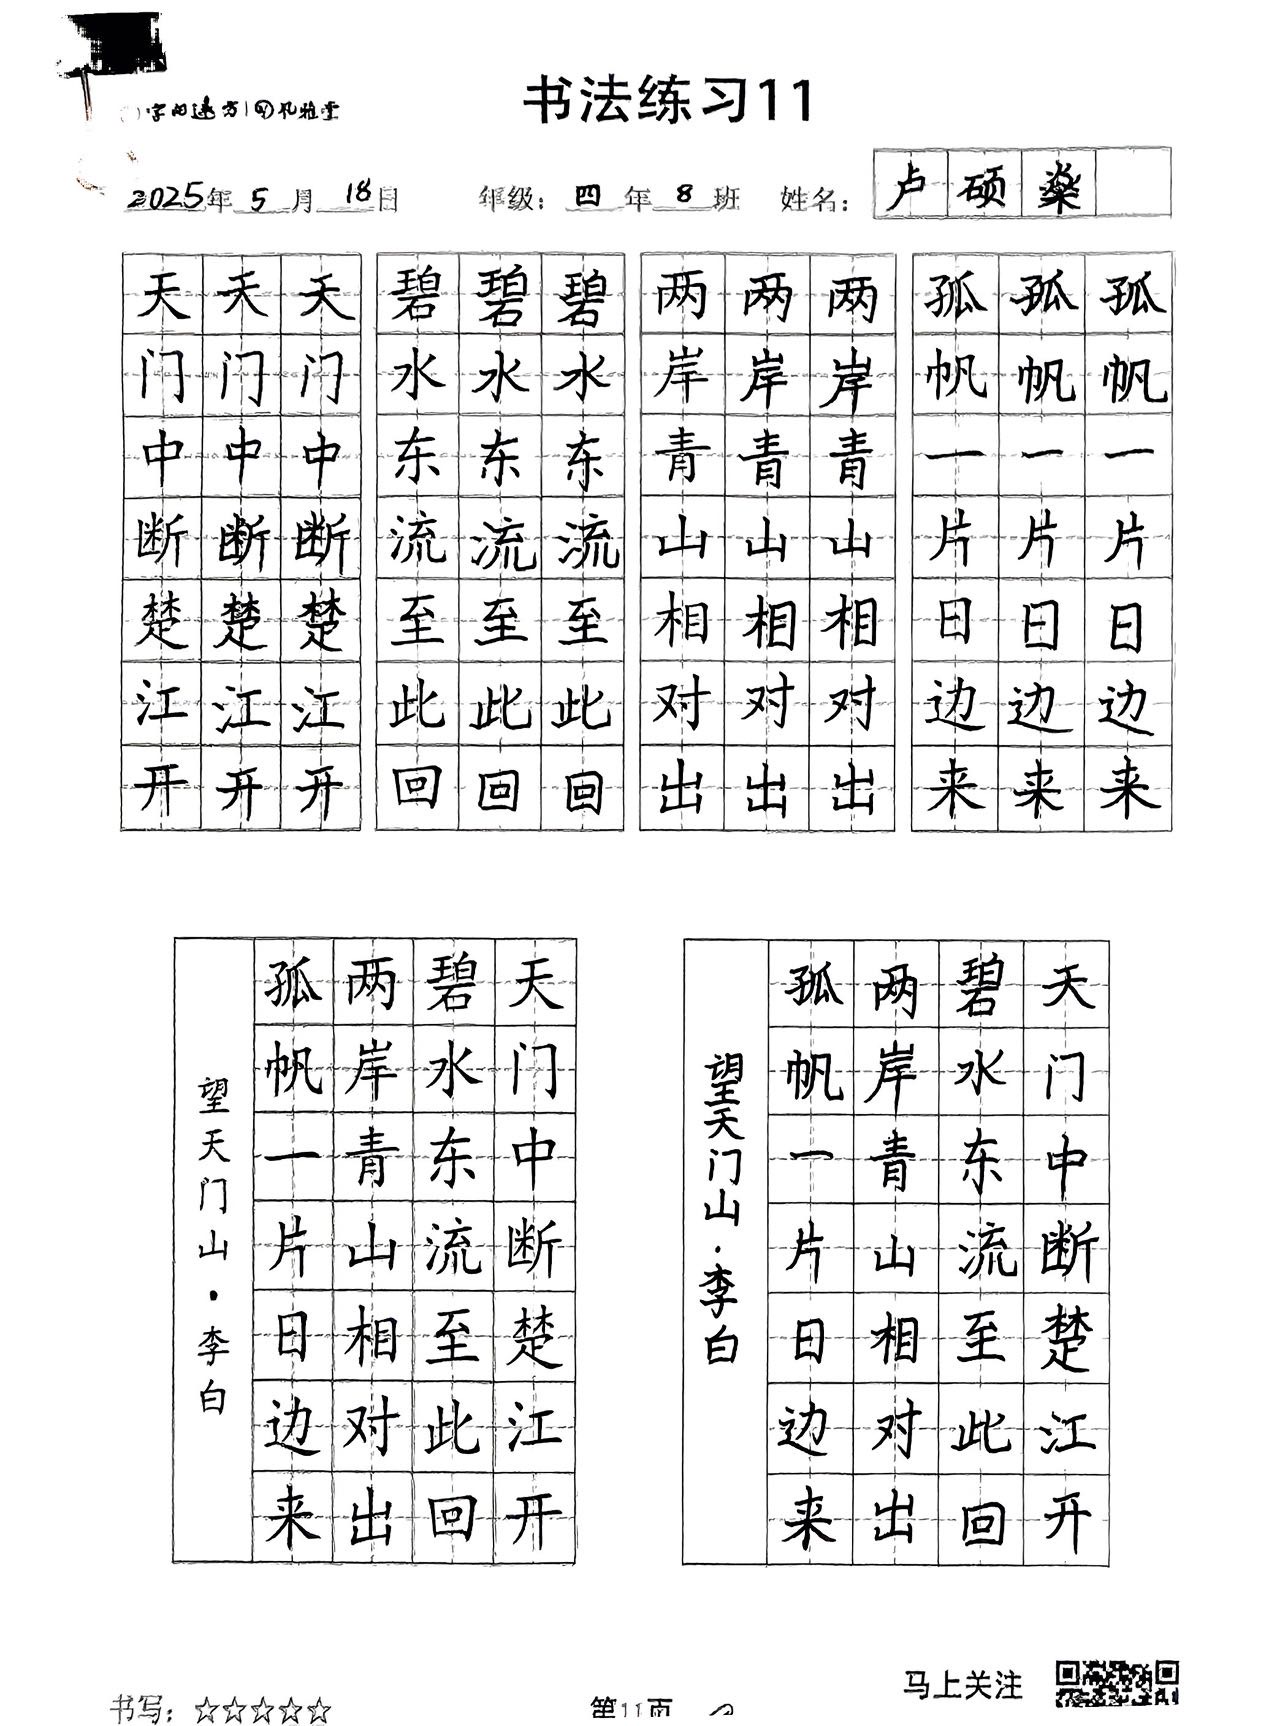 书法练习11
2025年 5 月 18日 年级：四 年 8 班 姓名：卢硕燊
天天天 碧碧碧 两两两 孤孤孤
门门门 水水水 岸岸岸 帆帆帆
中中中 东东东 青青青 一一一
断断断 流流流 山山山 片片片
楚楚楚 至至至 相相相 日日日
江江江 此此此 对对对 边边边
开开开 回回回 出出出 来来来
天门中断楚江开
碧水东流至此回
两岸青山相对出
孤帆一片日边来
望天门山·李白
天门中断楚江开
碧水东流至此回
两岸青山相对出
孤帆一片日边来
望天门山·李白
马上关注
书写：☆☆☆☆☆ 第11页